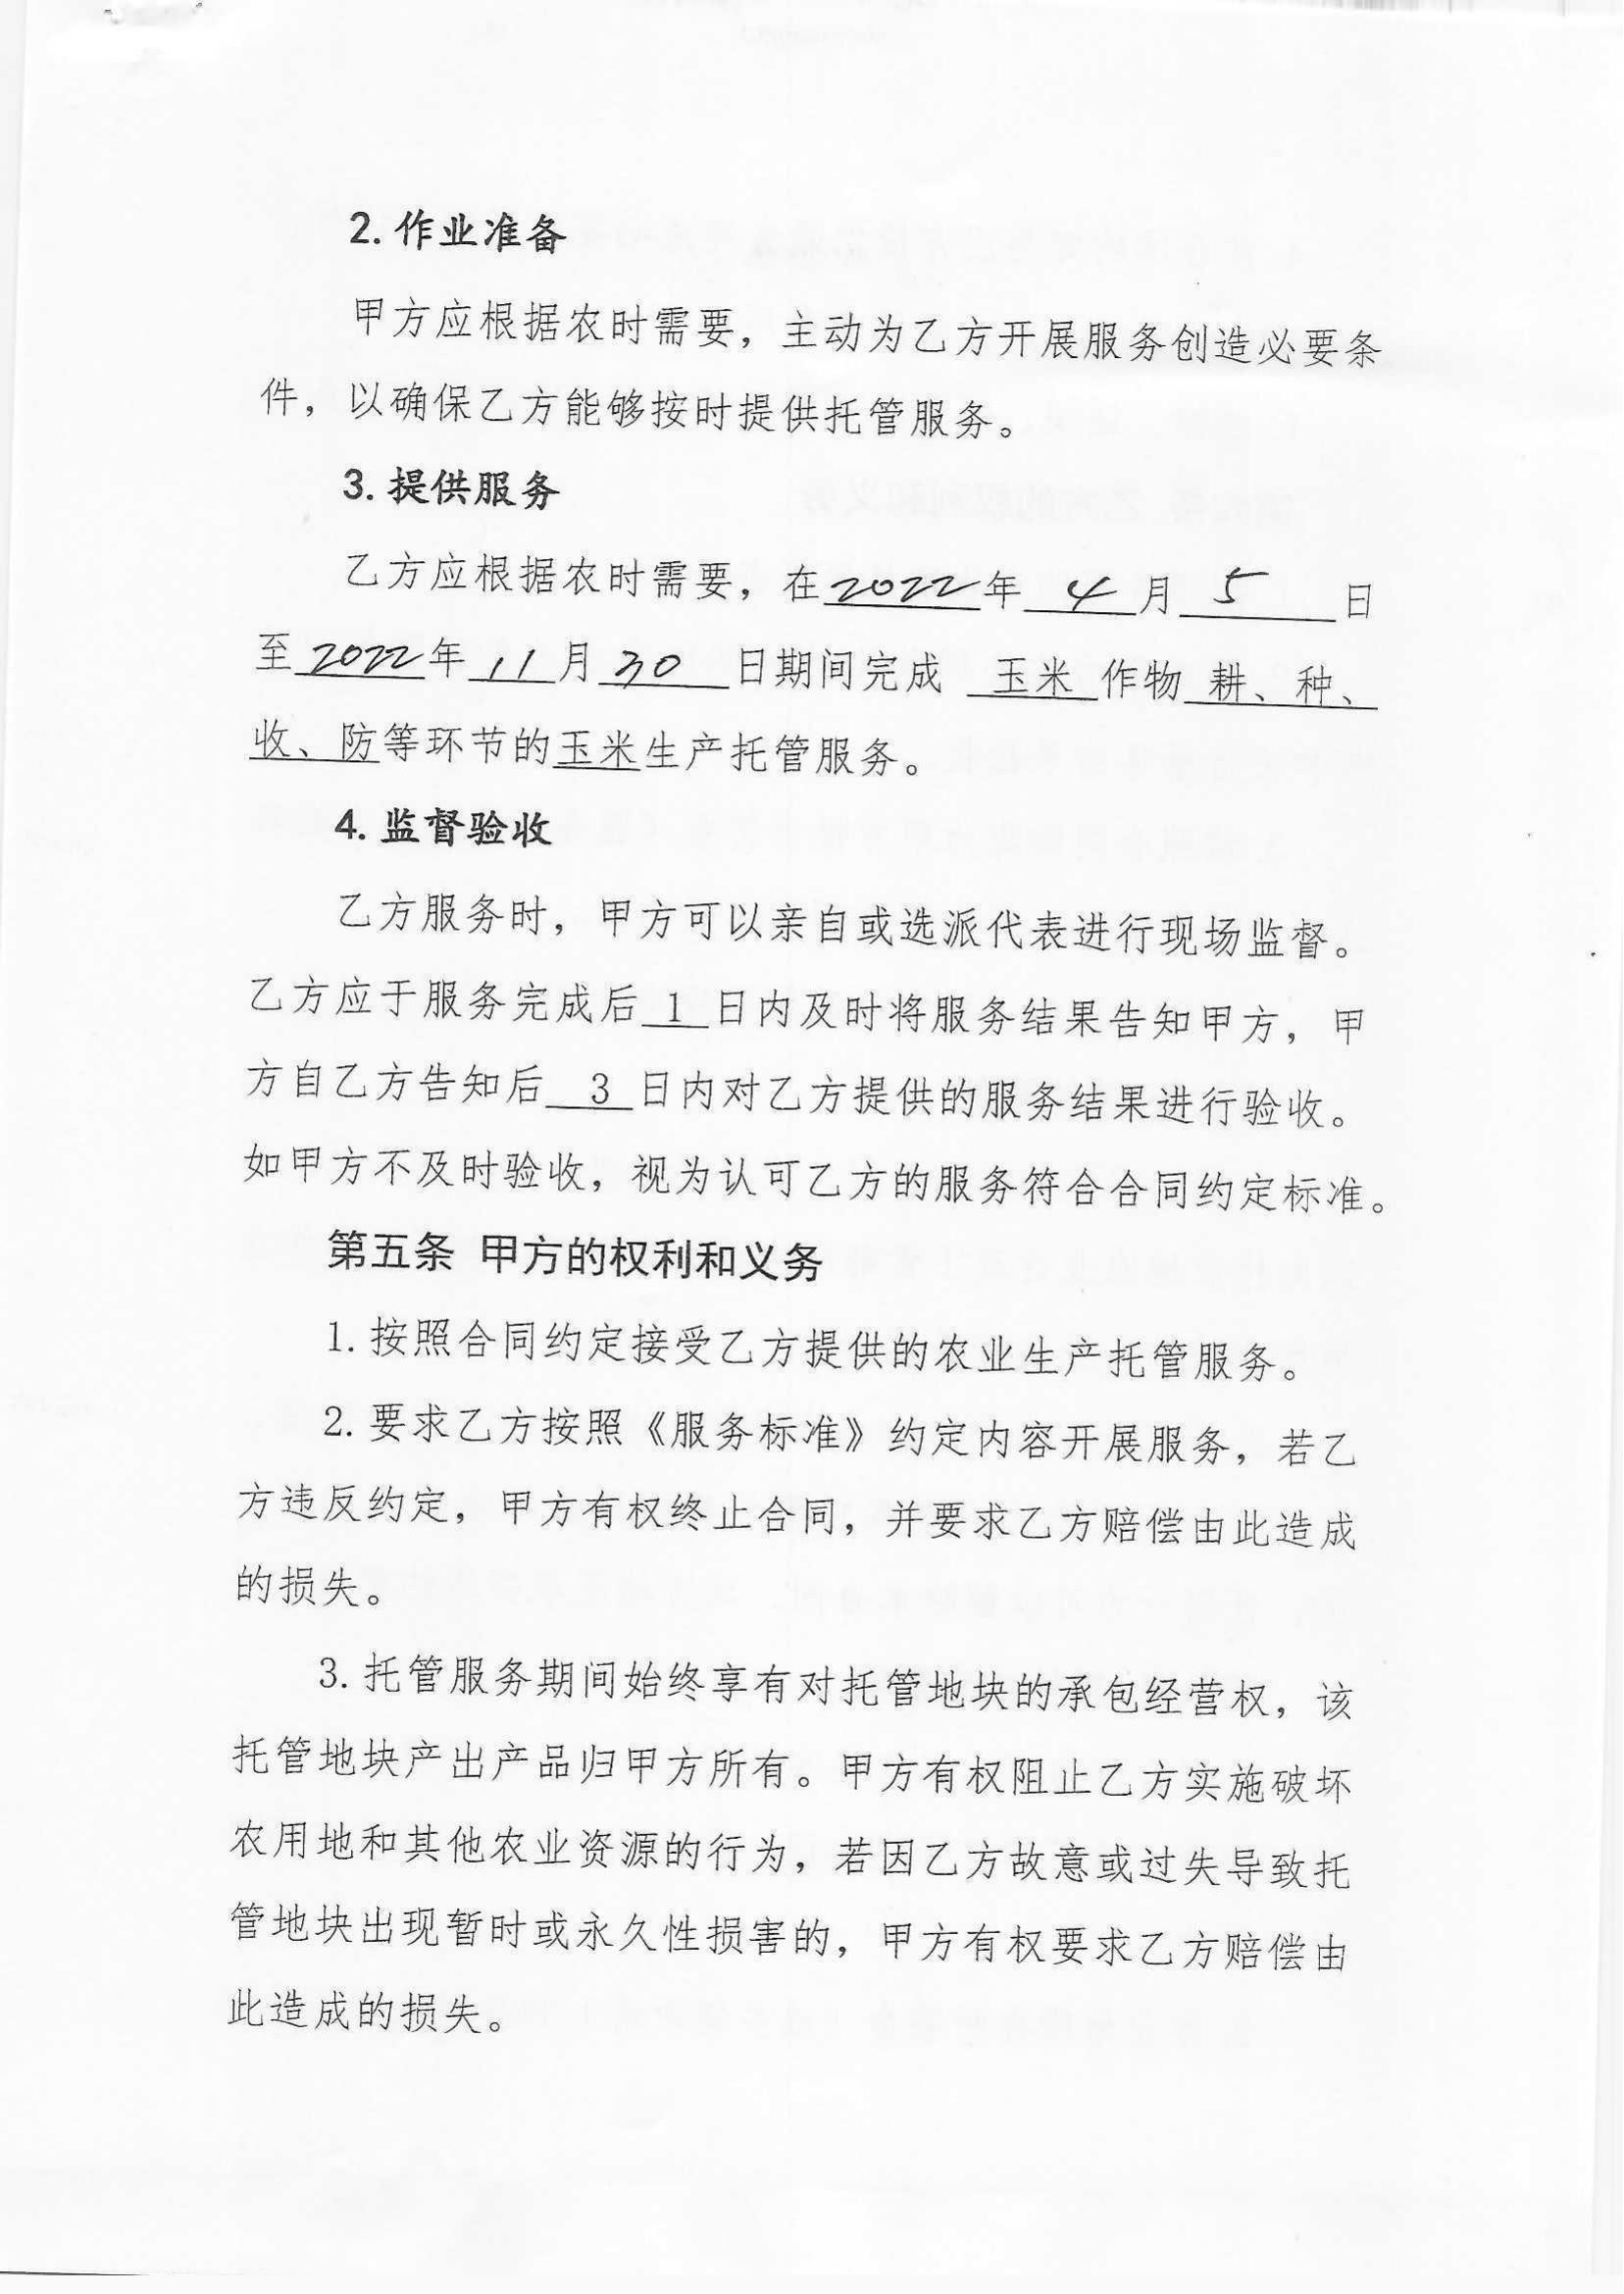 2. 作业准备
甲方应根据农时需要，主动为乙方开展服务创造必要条
件，以确保乙方能够按时提供托管服务。
3. 提供服务
乙方应根据农时需要，在2022年 4 月 5 日
至2022年 11 月 30 日期间完成 玉米 作物 耕、种、
收、防等环节的玉米生产托管服务。
4. 监督验收
乙方服务时，甲方可以亲自或选派代表进行现场监督。
乙方应于服务完成后 1 日内及时将服务结果告知甲方，甲
方自乙方告知后 3 日内对乙方提供的服务结果进行验收。
如甲方不及时验收，视为认可乙方的服务符合合同约定标准。
第五条 甲方的权利和义务
1. 按照合同约定接受乙方提供的农业生产托管服务。
2. 要求乙方按照《服务标准》约定内容开展服务，若乙
方违反约定，甲方有权终止合同，并要求乙方赔偿由此造成
的损失。
3. 托管服务期间始终享有对托管地块的承包经营权，该
托管地块产出产品归甲方所有。甲方有权阻止乙方实施破坏
农用地和其他农业资源的行为，若因乙方故意或过失导致托
管地块出现暂时或永久性损害的，甲方有权要求乙方赔偿由
此造成的损失。